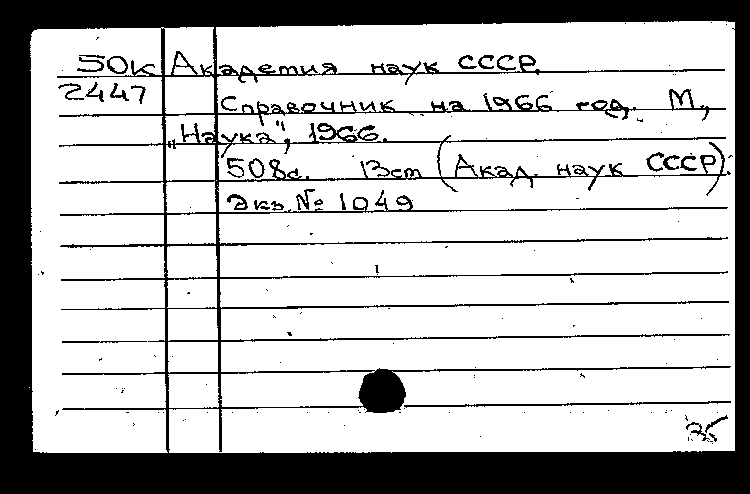 50к Академия наук СССР.
2447 Справочник на 1966 год. М,
„Наука", 1966.
508с. 13cm (Акад. наук СССР).
Экз. № 1049